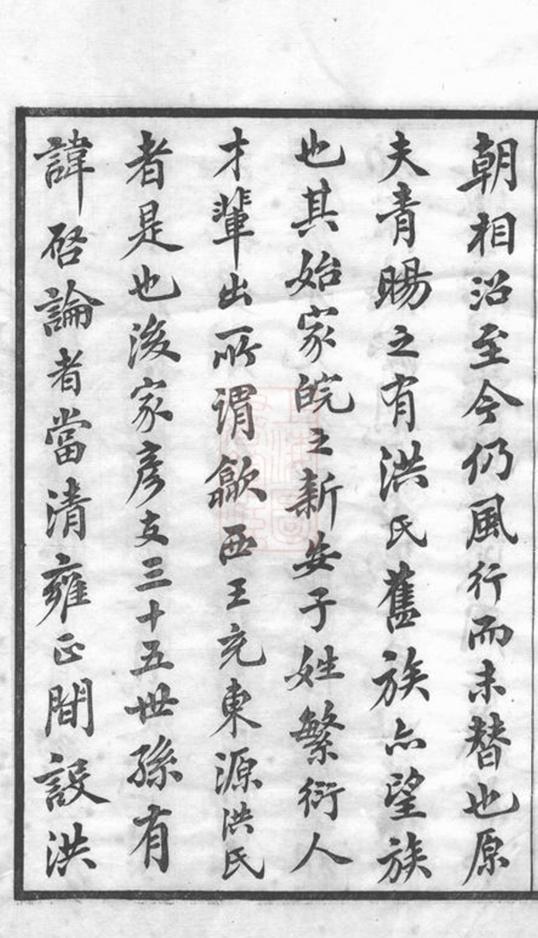 朝相沿至今仍風行而未替也原
夫青暘之有洪氏舊族亦望族
也其始家皖之新安子姓繁衍人
才輩出所謂歙西王充東源洪氏
者是也後家彥支三十五世孫有
諱啓論者當清雍正間設洪